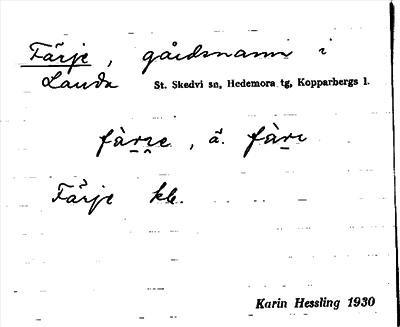 Färje, gårdsnamn i
Landa St. Skedvi sn, Hedemora tg, Kopparbergs l.
fàr̯r̯e, ä. fàr̯e
Färje kb.
Karin Hessling 1930